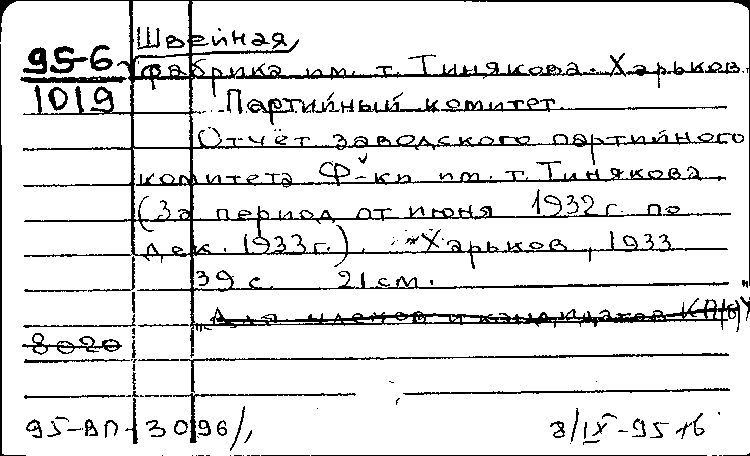 Швейная
95-6 фабрика им. т. Тинякова. Харьков.
1019 Партийный комитет.
Отчёт заводского партийного
комитета Ф-ки им. т. Тинякова.
(За период от июня 1932 г. по
дек. 1933 г.). Харьков, 1933
39 с. 21 см.
"Для членов и кандидатов КП(б)У"
8020
95-ВП-3096/1
8/IX-95